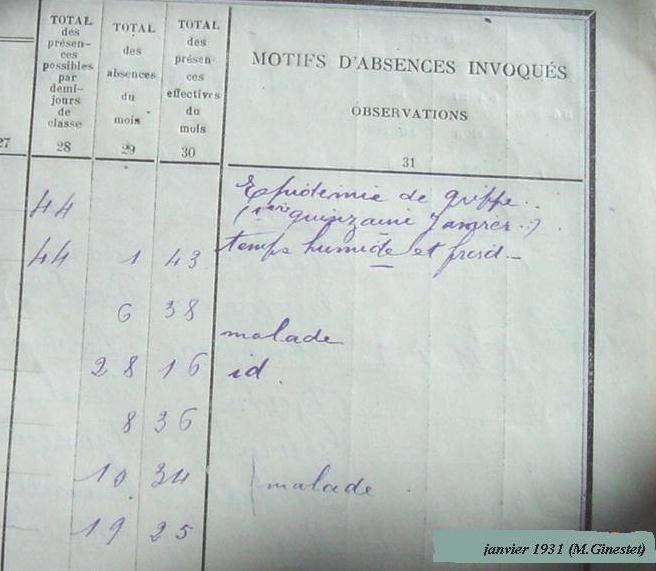 TOTAL
des
présen-
ces
possibles
par
demi-
jours
de
classe
TOTAL
des
absences
du
mois
TOTAL
des
présen-
ces
effectives
du
mois
MOTIFS D'ABSENCES INVOQUÉS
OBSERVATIONS
27 28 29 30 31
Epidémie de grippe
44 (1ère quinzaine Janvier.)
44 1 43 temps humide et froid
6 38
malade
28 16 id.
8 36
10 34 malade
19 25
janvier 1931 (M.Ginestet)